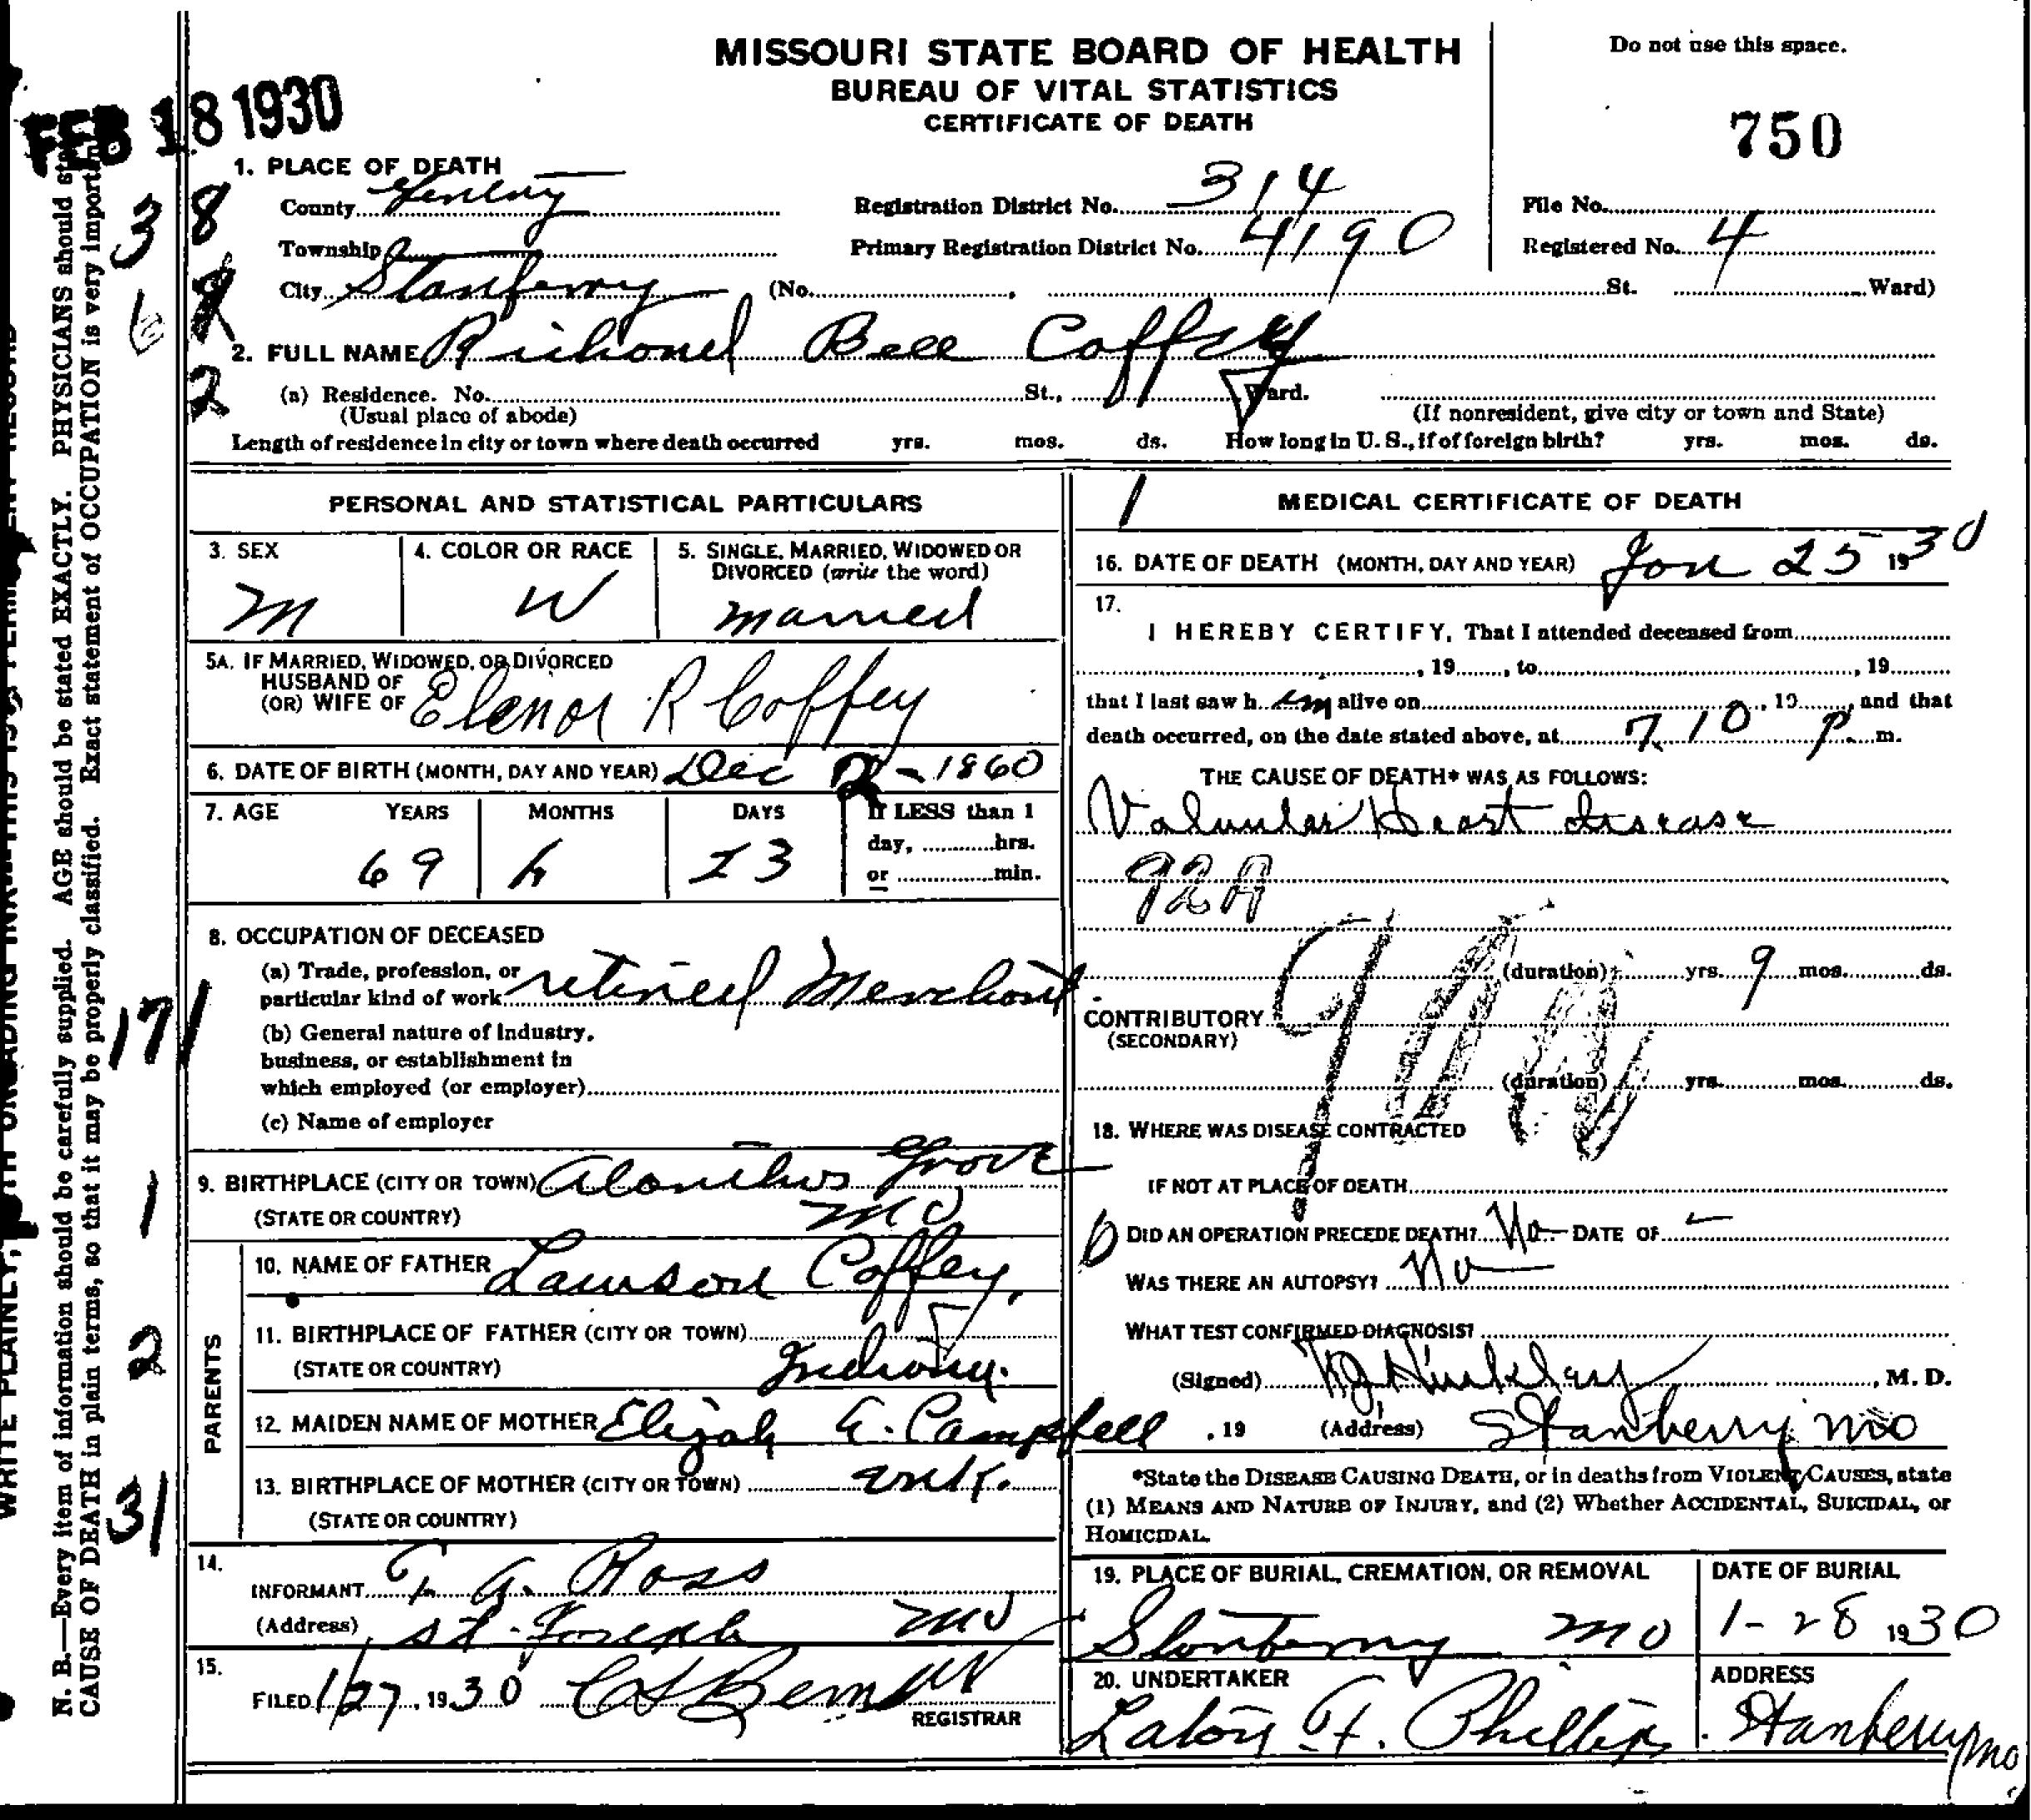 MISSOURI STATE BOARD OF HEALTH
BUREAU OF VITAL STATISTICS
CERTIFICATE OF DEATH
Do not use this space.
750
FEB 18 1930
1. PLACE OF DEATH
County Gentry
Registration District No. 314
File No.
Township
Primary Registration District No. 4190
Registered No. 4
City Stanberry (No. , St. Ward)
2. FULL NAME Richard Bell Coffey
(a) Residence. No. St., Ward.
(Usual place of abode)
(If nonresident, give city or town and State)
Length of residence in city or town where death occurred yrs. mos. ds. How long in U. S., if of foreign birth? yrs. mos. ds.
PERSONAL AND STATISTICAL PARTICULARS
3. SEX
M
4. COLOR OR RACE
W
5. SINGLE, MARRIED, WIDOWED OR
DIVORCED (write the word)
married
5A. IF MARRIED, WIDOWED, OR DIVORCED
HUSBAND OF
(OR) WIFE OF Elenor R Coffey
6. DATE OF BIRTH (MONTH, DAY AND YEAR) Dec 2 - 1860
7. AGE YEARS MONTHS DAYS
69 23
If LESS than 1
day, hrs.
or min.
8. OCCUPATION OF DECEASED
(a) Trade, profession, or
particular kind of work retired Merchant
(b) General nature of industry,
business, or establishment in
which employed (or employer)
(c) Name of employer
9. BIRTHPLACE (CITY OR TOWN) Alanthus Grove
(STATE OR COUNTRY) Mo
PARENTS
10. NAME OF FATHER Lawson Coffey
11. BIRTHPLACE OF FATHER (CITY OR TOWN)
(STATE OR COUNTRY) Indiana
12. MAIDEN NAME OF MOTHER Elijah E. Campbell
13. BIRTHPLACE OF MOTHER (CITY OR TOWN) unk.
(STATE OR COUNTRY)
14.
INFORMANT T. A. Ross
(Address) St. Joseph Mo
15.
FILED 1/27, 1930
REGISTRAR
MEDICAL CERTIFICATE OF DEATH
16. DATE OF DEATH (MONTH, DAY AND YEAR) Jan 25 1930
17.
I HEREBY CERTIFY, That I attended deceased from
, 19 , to , 19
that I last saw h im alive on , 19 , and that
death occurred, on the date stated above, at 7.10 P. m.
THE CAUSE OF DEATH* WAS AS FOLLOWS:
Valvular Heart disease
92A
(duration) yrs. 9 mos. ds.
CONTRIBUTORY
(SECONDARY)
(duration) yrs. mos. ds.
18. WHERE WAS DISEASE CONTRACTED
IF NOT AT PLACE OF DEATH
DID AN OPERATION PRECEDE DEATH? No DATE OF
WAS THERE AN AUTOPSY? No
WHAT TEST CONFIRMED DIAGNOSIS?
(Signed) , M. D.
, 19 (Address) Stanberry Mo
*State the DISEASE CAUSING DEATH, or in deaths from VIOLENT CAUSES, state
(1) MEANS AND NATURE OF INJURY, and (2) Whether ACCIDENTAL, SUICIDAL, or
HOMICIDAL.
19. PLACE OF BURIAL, CREMATION, OR REMOVAL
Stanberry Mo
DATE OF BURIAL
1-28 1930
20. UNDERTAKER
F. Phillips
ADDRESS
Stanberry Mo
N. B.—Every item of information should be carefully supplied. AGE should be stated EXACTLY. PHYSICIANS should state
CAUSE OF DEATH in plain terms, so that it may be properly classified. Exact statement of OCCUPATION is very important.
38
6
2
171
1
2
31